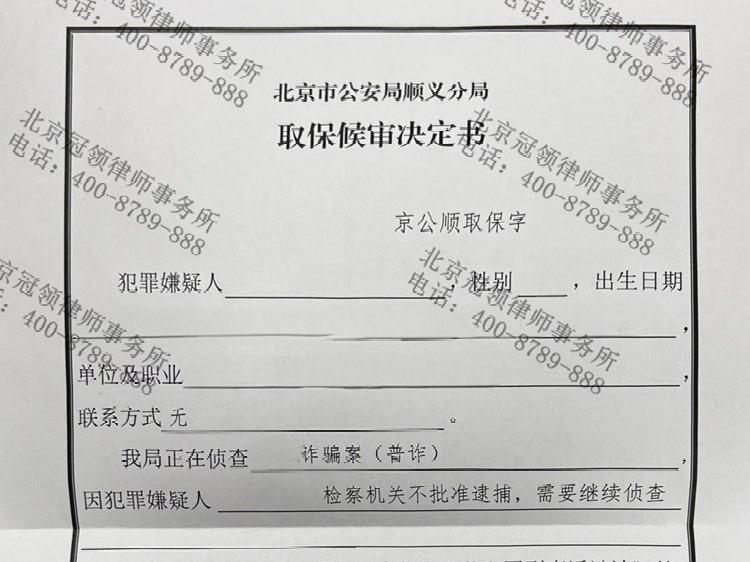 北京市公安局顺义分局
取保候审决定书
京公顺取保字
犯罪嫌疑人 ，性别 ，出生日期
，
单位及职业 ，
联系方式 无 。
我局正在侦查 诈骗案（普诈） ，
因犯罪嫌疑人 检察机关不批准逮捕，需要继续侦查
北京冠领律师事务所
电话：400-8789-888
北京冠领律师事务所
电话：400-8789-888
北京冠领律师事务所
电话：400-8789-888
北京冠领律师事务所
电话：400-8789-888
京冠领律师事务所
：400-8789-888
北京冠领律师事务所
电话：400-8789-888